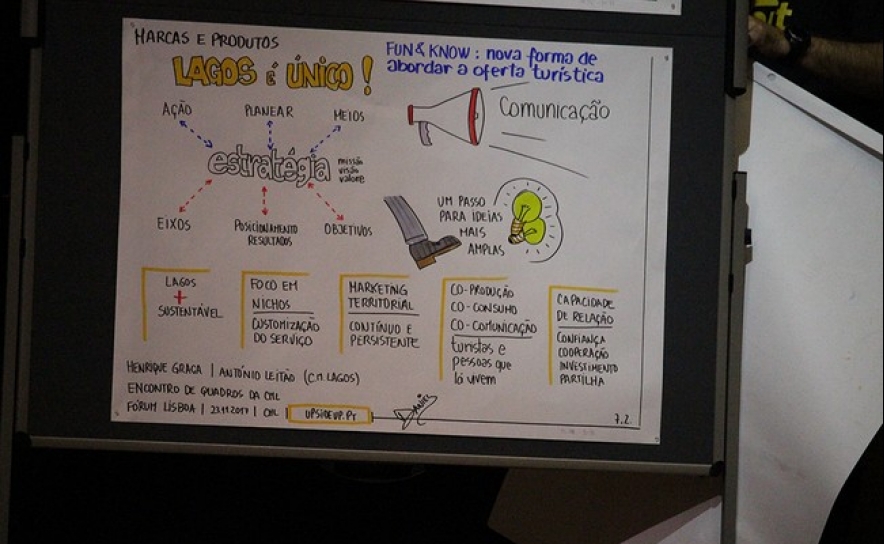 MARCAS E PRODUTOS
LAGOS É ÚNICO!
FUN & KNOW: nova forma de
abordar a oferta turística
AÇÃO
PLANEAR
MEIOS
Comunicação
estratégia
missão
visão
valore
EIXOS
POSICIONAMENTO
RESULTADOS
OBJETIVOS
UM PASSO
PARA IDEIAS
MAIS
AMPLAS
LAGOS
+
SUSTENTÁVEL
FOCO EM
NICHOS
CUSTOMIZAÇÃO
DO SERVIÇO
MARKETING
TERRITORIAL
CONTÍNUO E
PERSISTENTE
CO-PRODUÇÃO
CO-CONSUMO
CO-COMUNICAÇÃO
turistas e
pessoas que
lá vivem
CAPACIDADE
DE RELAÇÃO
CONFIANÇA
COOPERAÇÃO
INVESTIMENTO
PARTILHA
HENRIQUE GRAÇA | ANTÓNIO LEITÃO (CM LAGOS)
ENCONTRO DE QUADROS DA CML
FÓRUM LISBOA | 23.11.2017 | CML | UPSIDEUP.PT
7.2.